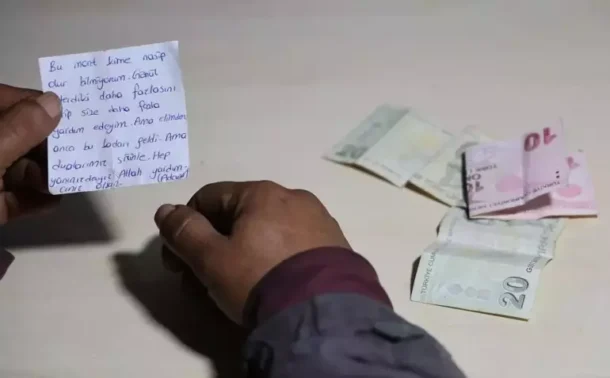 Bu mont kime nasip
olur bilmiyorum. Gönül
isterdiki daha fazlasını
size daha fazla
yardım edeyim. Ama elimden
anca bu kadarı geldi. Ama
dualarımız sizinle. Hep
yanınızdayız Allah yardım-
cınız olsun
10
10
20